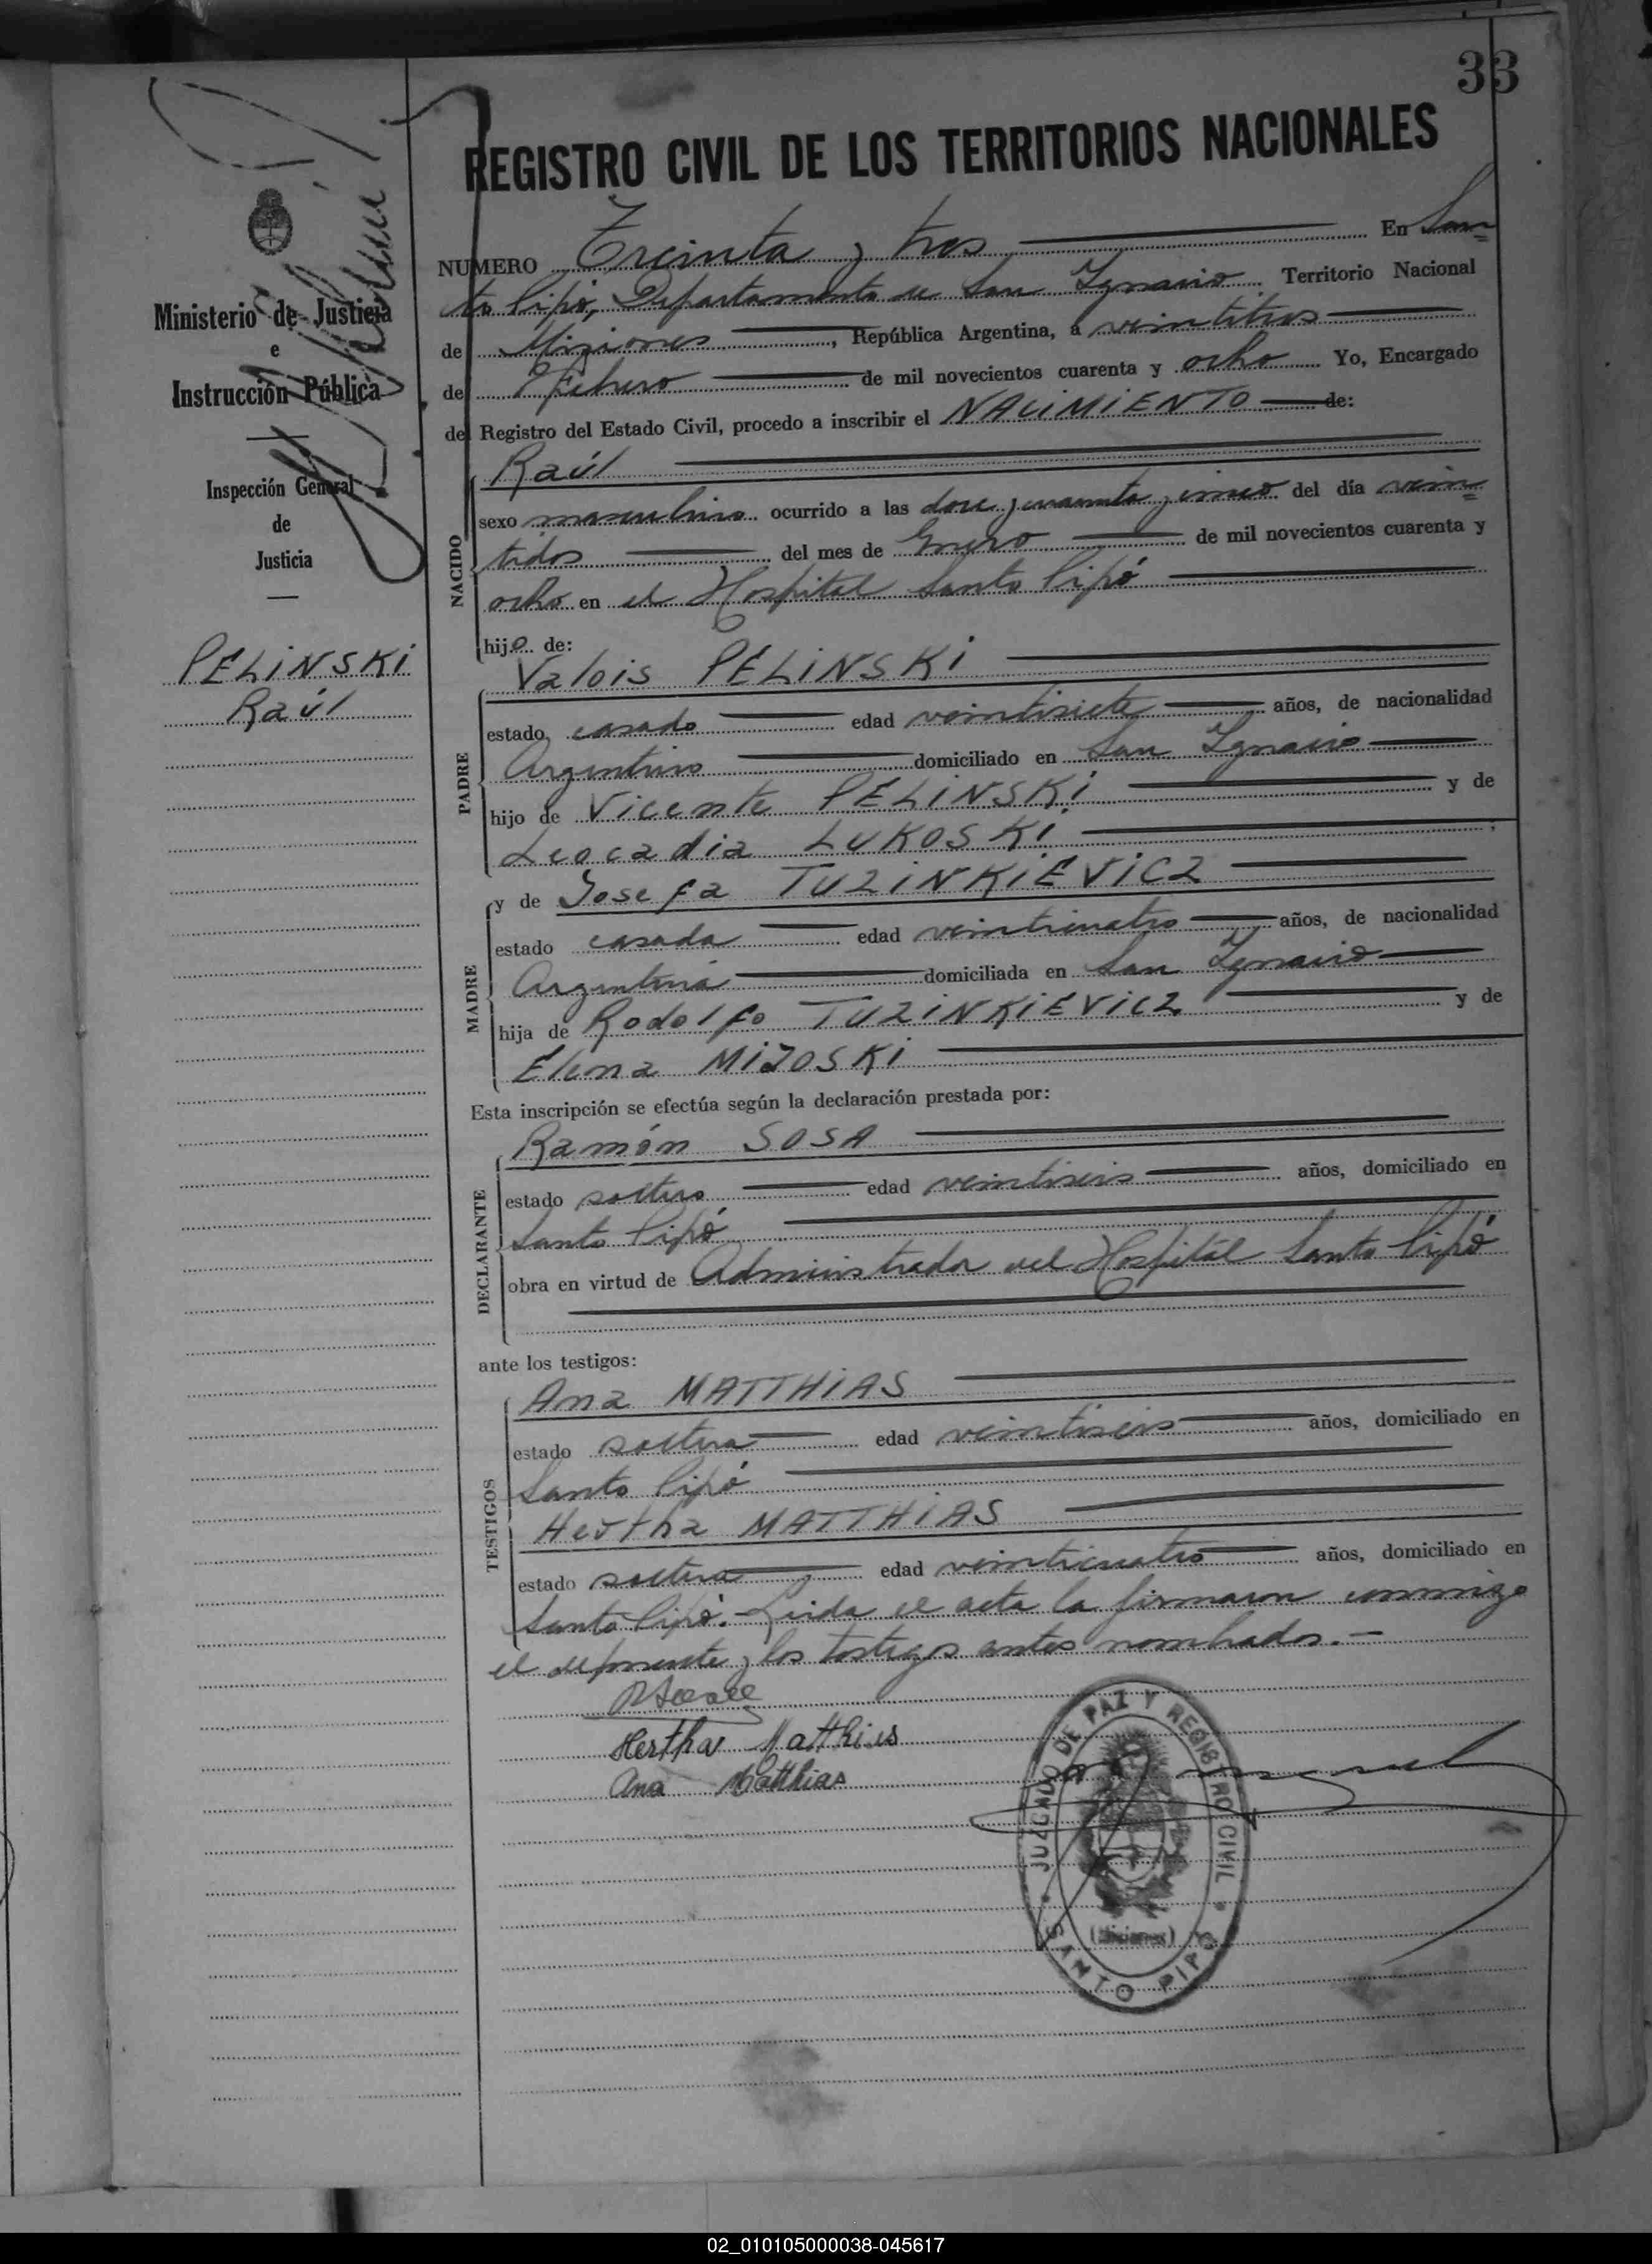 33
REGISTRO CIVIL DE LOS TERRITORIOS NACIONALES
Ministerio de Justicia
e
Instrucción Pública
Inspección General
de
Justicia
PELINSKI
Raúl
NUMERO Treinta y tres En San=
to Pipó, Departamento de San Ignacio Territorio Nacional
de Misiones, República Argentina, a veintitres
de Febrero de mil novecientos cuarenta y ocho Yo, Encargado
del Registro del Estado Civil, procedo a inscribir el NACIMIENTO de:
NACIDO
Raúl
sexo masculino ocurrido a las doce y cuarenta y cinco del día vein=
tidos del mes de Enero de mil novecientos cuarenta y
ocho en el Hospital Santo Pipó
hijo de:
PADRE
Valois PELINSKI
estado casado edad veintisiete años, de nacionalidad
Argentino domiciliado en San Ignacio
hijo de Vicente PELINSKI y de
Leocadia LUKOSKI;
MADRE
y de Josefa TUZINKIEVICZ
estado casada edad veinticuatro años, de nacionalidad
Argentina domiciliada en San Ignacio
hija de Rodolfo TUZINKIEVICZ y de
Elena MIJOSKI
Esta inscripción se efectúa según la declaración prestada por:
DECLARANTE
Ramón SOSA
estado soltero edad veintiseis años, domiciliado en
Santo Pipó
obra en virtud de Administrador del Hospital Santo Pipó
ante los testigos:
TESTIGOS
Ana MATTHIAS
estado soltera edad veintiseis años, domiciliado en
Santo Pipó
Hertha MATTHIAS
estado soltera edad veinticuatro años, domiciliado en
Santo Pipó.- Leida el acta la firmaron conmigo
el deponente y los testigos antes nombrados.-
Hertha Matthias
Ana Matthias
JUZGADO DE PAZ Y REGISTRO CIVIL
(Misiones)
SANTO PIPÓ
02_010105000038-045617